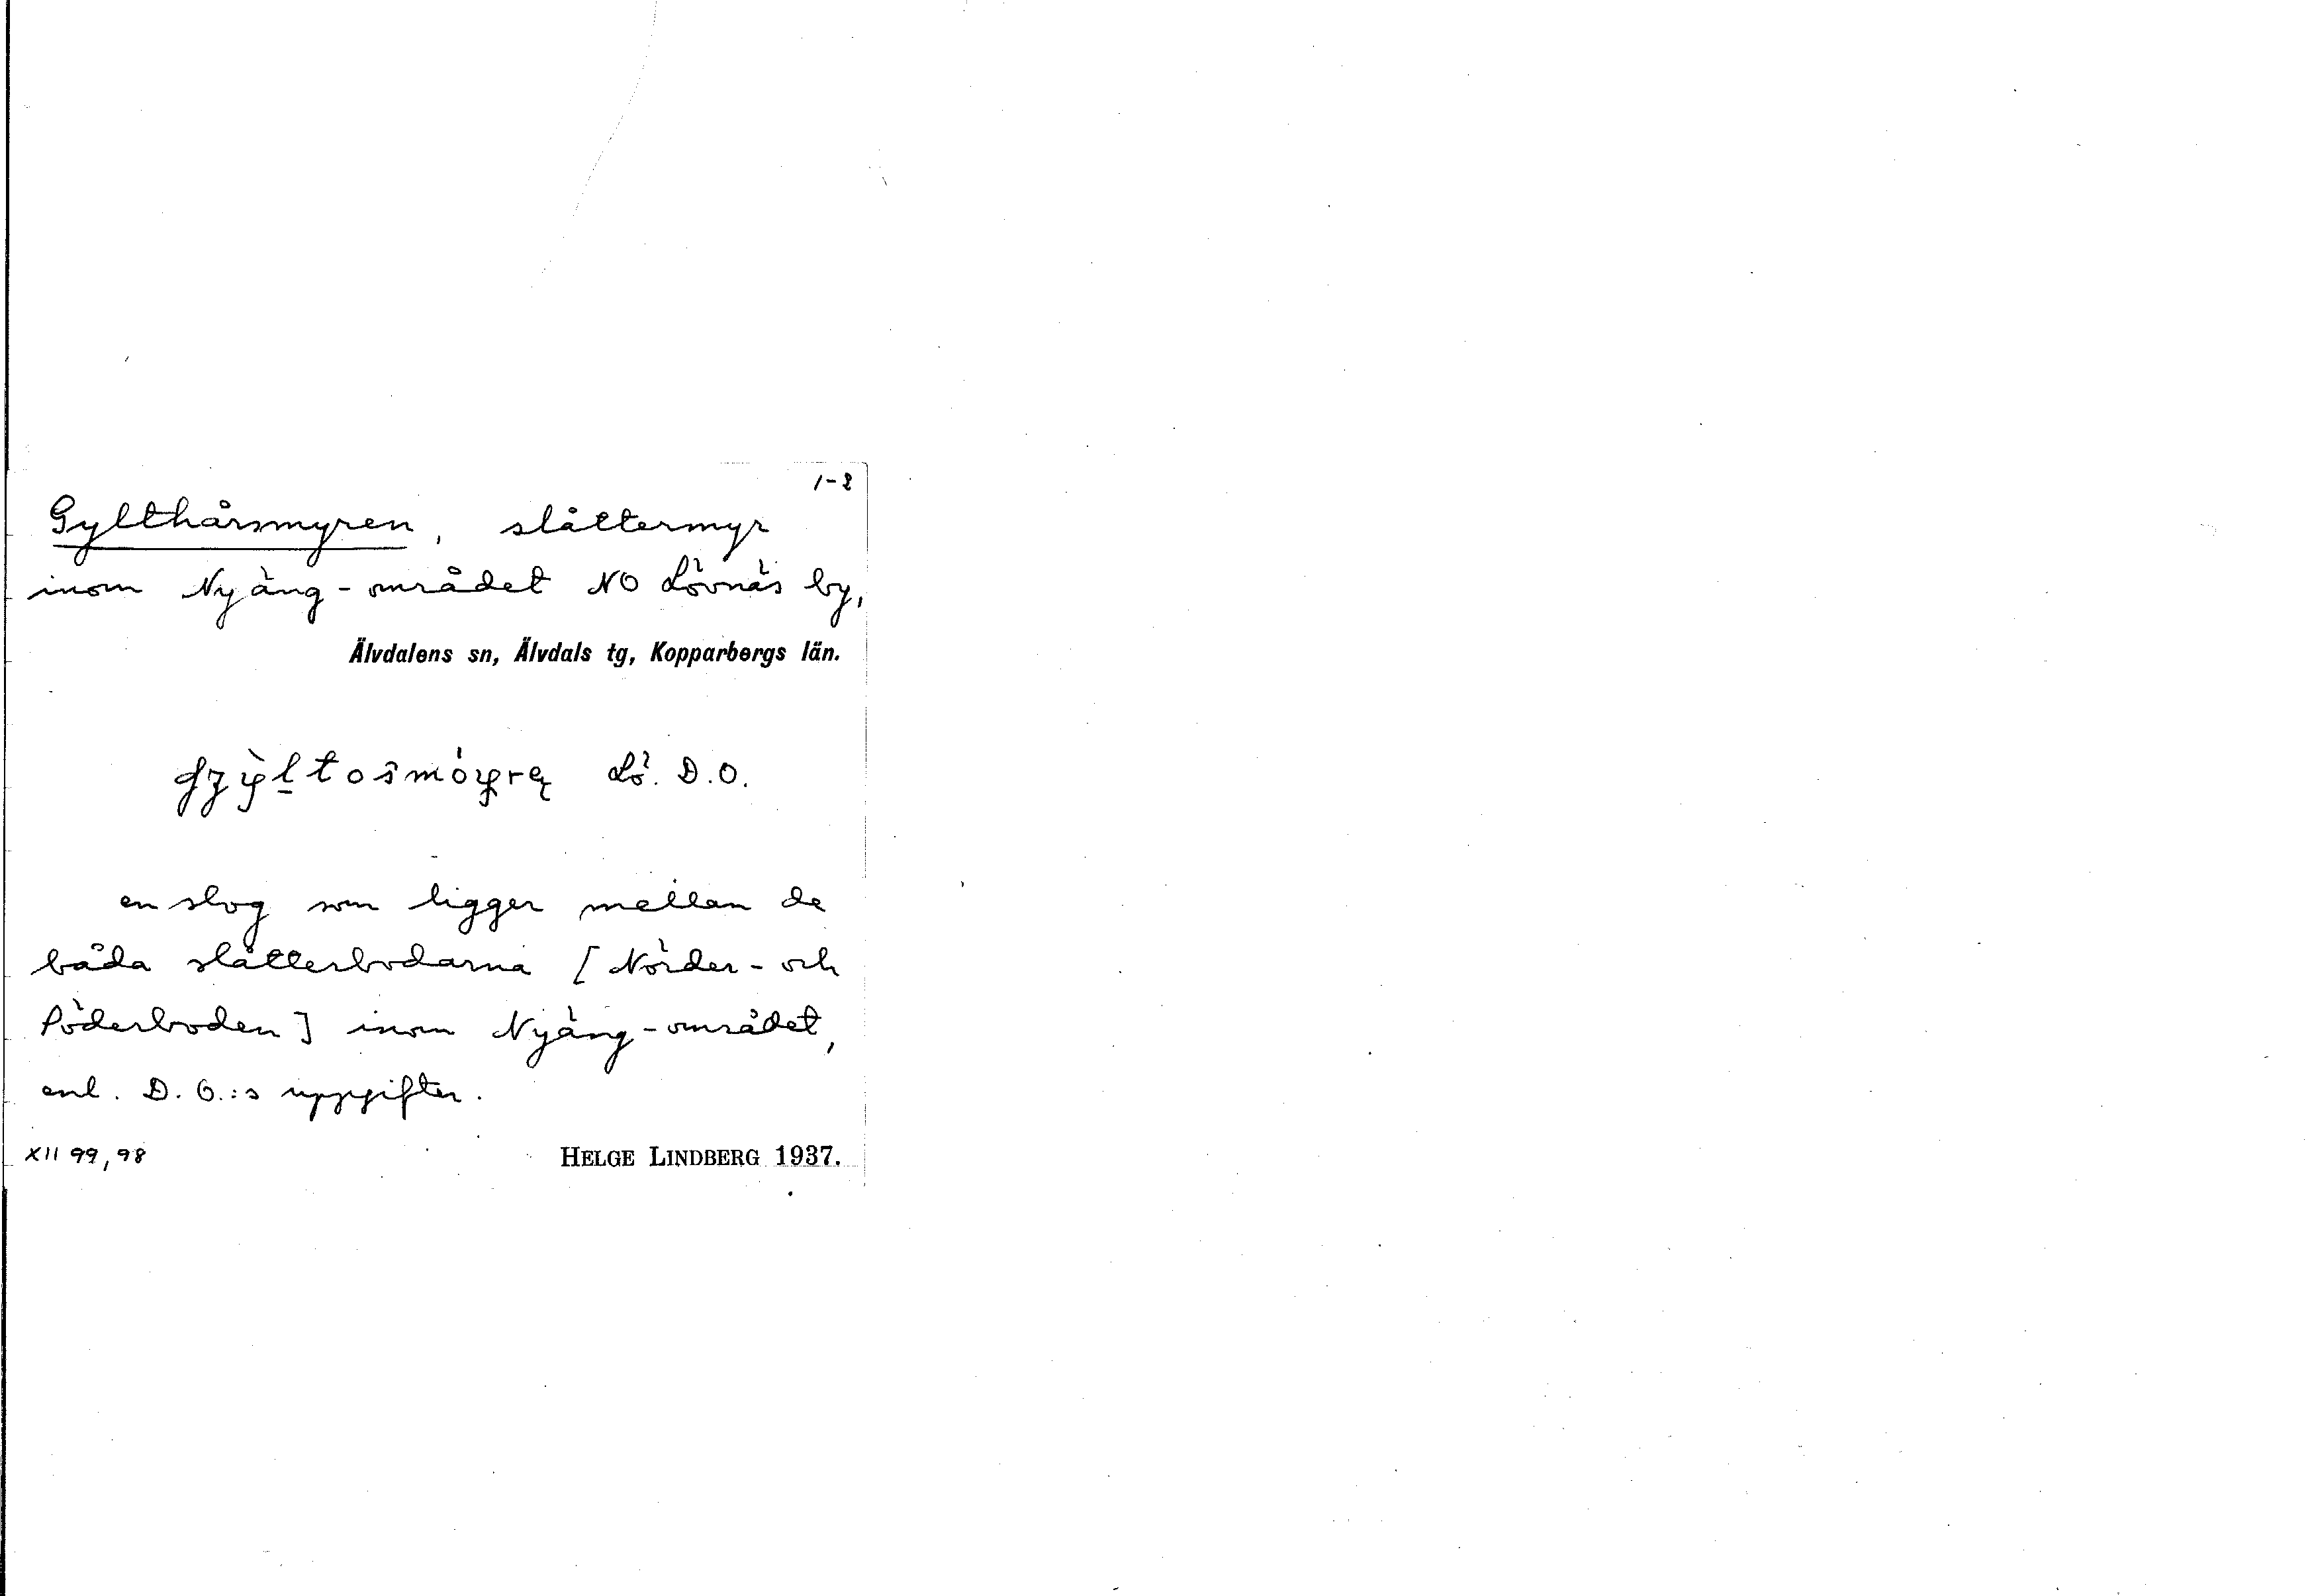 1-2
Gylthårsmyren, slåttermyr
inom Nyäng-området NO Lövnäs by,
Älvdalens sn, Älvdals tg, Kopparbergs län.
Lö. D.O.
en slog som ligger mellan de
båda slåtterbodarna [Nörder- och
Söderboden] inom Nyäng-området,
enl. D.O.:s uppgifter.
XII 99, 98
HELGE LINDBERG 1937.